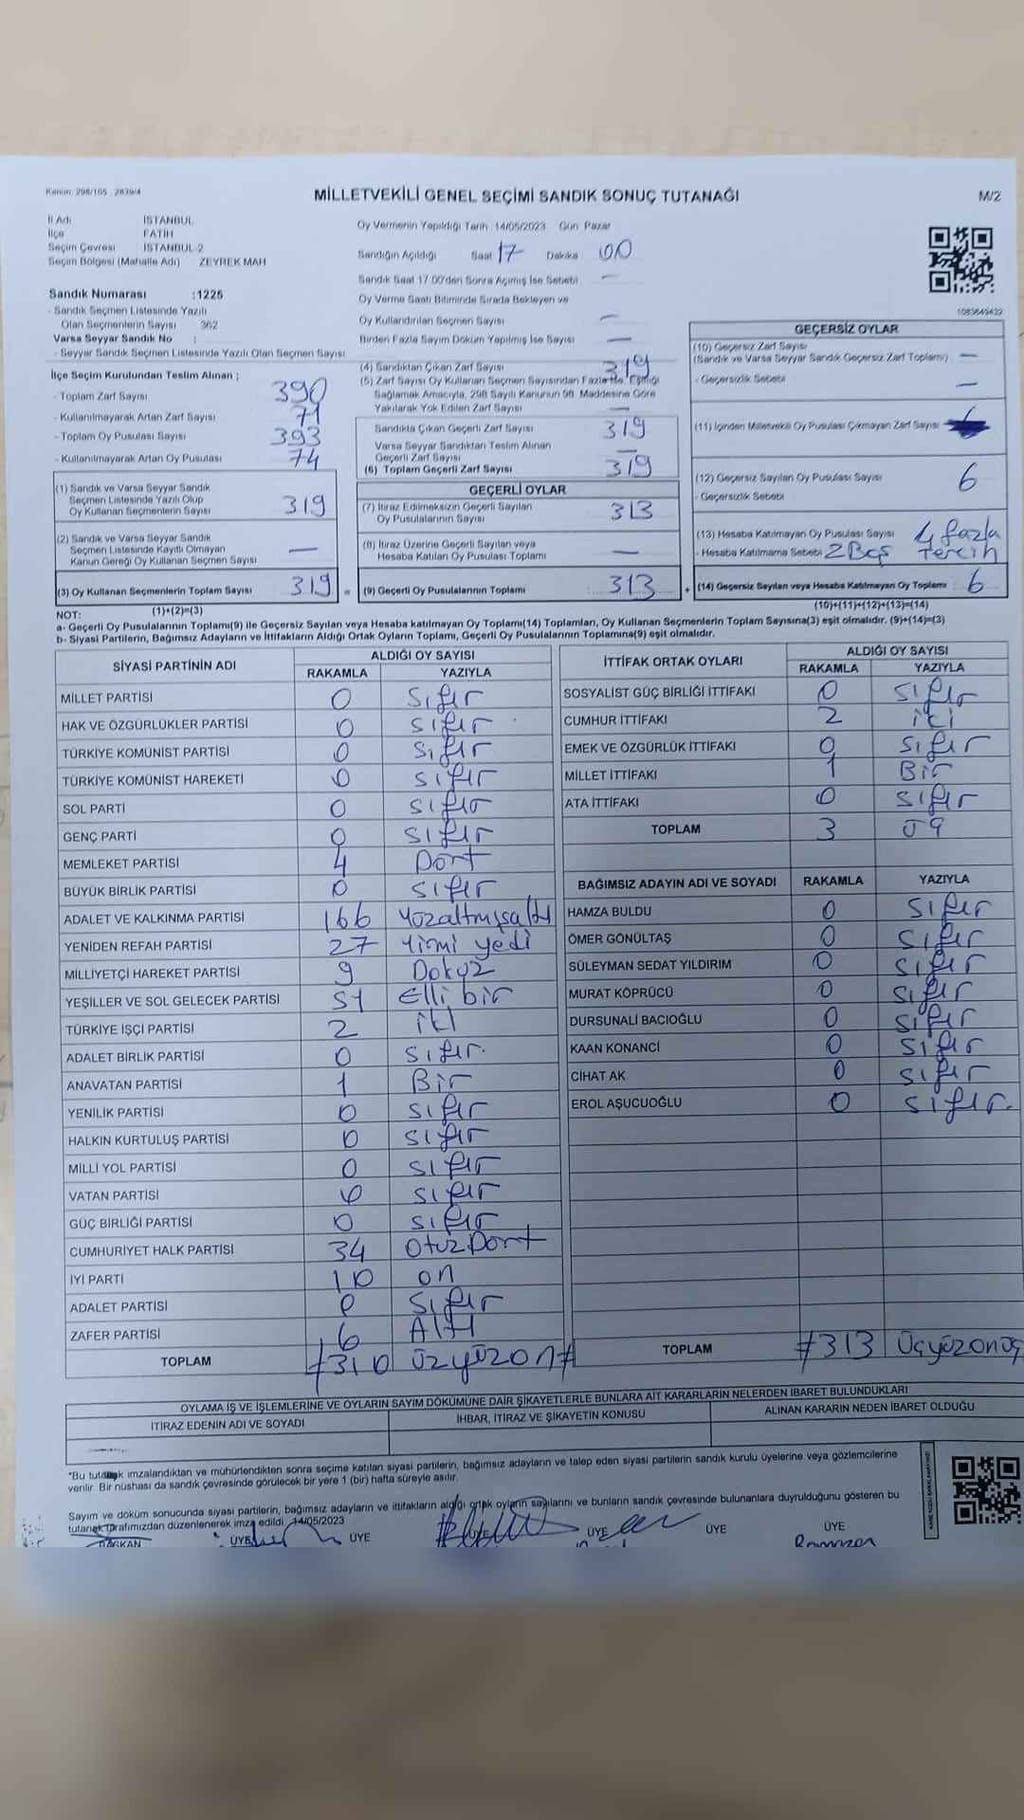 Kanun: 298/105 - 2839/4
MİLLETVEKİLİ GENEL SEÇİMİ SANDIK SONUÇ TUTANAĞI
M/2
İl Adı İSTANBUL
İlçe FATİH
Seçim Çevresi İSTANBUL-2
Seçim Bölgesi (Mahalle Adı) ZEYREK MAH
Sandık Numarası :1225
- Sandık Seçmen Listesinde Yazılı
Olan Seçmenlerin Sayısı 362
Varsa Seyyar Sandık No :
- Seyyar Sandık Seçmen Listesinde Yazılı Olan Seçmen Sayısı
İlçe Seçim Kurulundan Teslim Alınan ;
- Toplam Zarf Sayısı 390
- Kullanılmayarak Artan Zarf Sayısı 71
- Toplam Oy Pusulası Sayısı 393
- Kullanılmayarak Artan Oy Pusulası 74
(1) Sandık ve Varsa Seyyar Sandık
Seçmen Listesinde Yazılı Olup
Oy Kullanan Seçmenlerin Sayısı 319
(2) Sandık ve Varsa Seyyar Sandık
Seçmen Listesinde Kayıtlı Olmayan
Kanun Gereği Oy Kullanan Seçmen Sayısı —
(3) Oy Kullanan Seçmenlerin Toplam Sayısı 319 =
(1)+(2)=(3)
Oy Vermenin Yapıldığı Tarih 14/05/2023 Gün Pazar
Sandığın Açıldığı Saat 17 Dakika 00
Sandık Saat 17.00'den Sonra Açılmış İse Sebebi —
Oy Verme Saati Bitiminde Sırada Bekleyen ve
Oy Kullandırılan Seçmen Sayısı —
Birden Fazla Sayım Döküm Yapılmış İse Sayısı —
(4) Sandıktan Çıkan Zarf Sayısı 319
(5) Zarf Sayısı Oy Kullanan Seçmen Sayısından Fazla İse, Eşitliği
Sağlamak Amacıyla, 298 Sayılı Kanunun 98. Maddesine Göre
Yakılarak Yok Edilen Zarf Sayısı —
Sandıkta Çıkan Geçerli Zarf Sayısı 319
Varsa Seyyar Sandıktan Teslim Alınan
Geçerli Zarf Sayısı —
(6) Toplam Geçerli Zarf Sayısı 319
GEÇERLİ OYLAR
(7) İtiraz Edilmeksizin Geçerli Sayılan
Oy Pusulalarının Sayısı 313
(8) İtiraz Üzerine Geçerli Sayılan veya
Hesaba Katılan Oy Pusulası Toplamı —
(9) Geçerli Oy Pusulalarının Toplamı 313 +
1083649432
GEÇERSİZ OYLAR
(10) Geçersiz Zarf Sayısı
(Sandık ve Varsa Seyyar Sandık Geçersiz Zarf Toplamı) —
- Geçersizlik Sebebi —
(11) İçinden Milletvekili Oy Pusulası Çıkmayan Zarf Sayısı
(12) Geçersiz Sayılan Oy Pusulası Sayısı 6
- Geçersizlik Sebebi
(13) Hesaba Katılmayan Oy Pusulası Sayısı 4 fazla
- Hesaba Katılmama Sebebi 2 Boş Tercih
(14) Geçersiz Sayılan veya Hesaba Katılmayan Oy Toplamı 6
(10)+(11)+(12)+(13)=(14)
NOT:
a- Geçerli Oy Pusulalarının Toplamı(9) ile Geçersiz Sayılan veya Hesaba katılmayan Oy Toplamı(14) Toplamları, Oy Kullanan Seçmenlerin Toplam Sayısına(3) eşit olmalıdır. (9)+(14)=(3)
b- Siyasi Partilerin, Bağımsız Adayların ve İttifakların Aldığı Ortak Oyların Toplamı, Geçerli Oy Pusulalarının Toplamına(9) eşit olmalıdır.
SİYASİ PARTİNİN ADI ALDIĞI OY SAYISI
RAKAMLA YAZIYLA
MİLLET PARTİSİ 0 Sıfır
HAK VE ÖZGÜRLÜKLER PARTİSİ 0 Sıfır
TÜRKİYE KOMÜNİST PARTİSİ 0 Sıfır
TÜRKİYE KOMÜNİST HAREKETİ 0 Sıfır
SOL PARTİ 0 Sıfır
GENÇ PARTİ 0 Sıfır
MEMLEKET PARTİSİ 4 Dört
BÜYÜK BİRLİK PARTİSİ 0 Sıfır
ADALET VE KALKINMA PARTİSİ 166 Yüzaltmışaltı
YENİDEN REFAH PARTİSİ 27 Yirmi yedi
MİLLİYETÇİ HAREKET PARTİSİ 9 Dokuz
YEŞİLLER VE SOL GELECEK PARTİSİ 51 Elli bir
TÜRKİYE İŞÇİ PARTİSİ 2 iki
ADALET BİRLİK PARTİSİ 0 Sıfır.
ANAVATAN PARTİSİ 1 Bir
YENİLİK PARTİSİ 0 Sıfır
HALKIN KURTULUŞ PARTİSİ 0 Sıfır
MİLLİ YOL PARTİSİ 0 Sıfır
VATAN PARTİSİ 0 Sıfır
GÜÇ BİRLİĞİ PARTİSİ 0 Sıfır
CUMHURİYET HALK PARTİSİ 34 OtuzDört
İYİ PARTİ 10 on
ADALET PARTİSİ 0 Sıfır
ZAFER PARTİSİ 6 Altı
TOPLAM #310 üzyüzon#
İTTİFAK ORTAK OYLARI ALDIĞI OY SAYISI
RAKAMLA YAZIYLA
SOSYALİST GÜÇ BİRLİĞİ İTTİFAKI 0 Sıfır
CUMHUR İTTİFAKI 2 iki
EMEK VE ÖZGÜRLÜK İTTİFAKI 0 Sıfır
MİLLET İTTİFAKI 1 Bir
ATA İTTİFAKI 0 Sıfır
TOPLAM 3 Üç
BAĞIMSIZ ADAYIN ADI VE SOYADI RAKAMLA YAZIYLA
HAMZA BULDU 0 Sıfır
ÖMER GÖNÜLTAŞ 0 Sıfır
SÜLEYMAN SEDAT YILDIRIM 0 Sıfır
MURAT KÖPRÜCÜ 0 Sıfır
DURSUNALİ BACIOĞLU 0 Sıfır
KAAN KONANCİ 0 Sıfır
CİHAT AK 0 Sıfır
EROL AŞUCUOĞLU 0 Sıfır.
TOPLAM #313 Üçyüzonüç
OYLAMA İŞ VE İŞLEMLERİNE VE OYLARIN SAYIM DÖKÜMÜNE DAİR ŞİKAYETLERLE BUNLARA AİT KARARLARIN NELERDEN İBARET BULUNDUKLARI
İTİRAZ EDENİN ADI VE SOYADI İHBAR, İTİRAZ VE ŞİKAYETİN KONUSU ALINAN KARARIN NEDEN İBARET OLDUĞU
*Bu tutanak imzalandıktan ve mühürlendikten sonra seçime katılan siyasi partilerin, bağımsız adayların ve talep eden siyasi partilerin sandık kurulu üyelerine veya gözlemcilerine
verilir. Bir nüshası da sandık çevresinde görülecek bir yere 1 (bir) hafta süreyle asılır.
Sayım ve döküm sonucunda siyasi partilerin, bağımsız adayların ve ittifakların aldığı ortak oyların sayılarını ve bunların sandık çevresinde bulunanlara duyrulduğunu gösteren bu
tutanak tarafımızdan düzenlenerek imza edildi. 14/05/2023
BAŞKAN ÜYE ÜYE ÜYE ÜYE ÜYE ÜYE
Ramazan